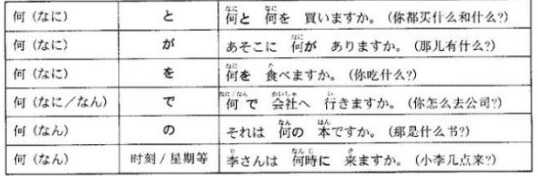 何（なに） と 何と 何を 買いますか。（你都买什么和什么?）
何（なに） が あそこに 何が ありますか。（那儿有什么?）
何（なに） を 何を 食べますか。（你吃什么?）
何（なに／なん） で 何で 会社へ 行きますか。（你怎么去公司?）
何（なん） の それは 何の 本ですか。（那是什么书?）
何（なん） 时刻／星期等 李さんは 何時に 来ますか。（小李几点来?）